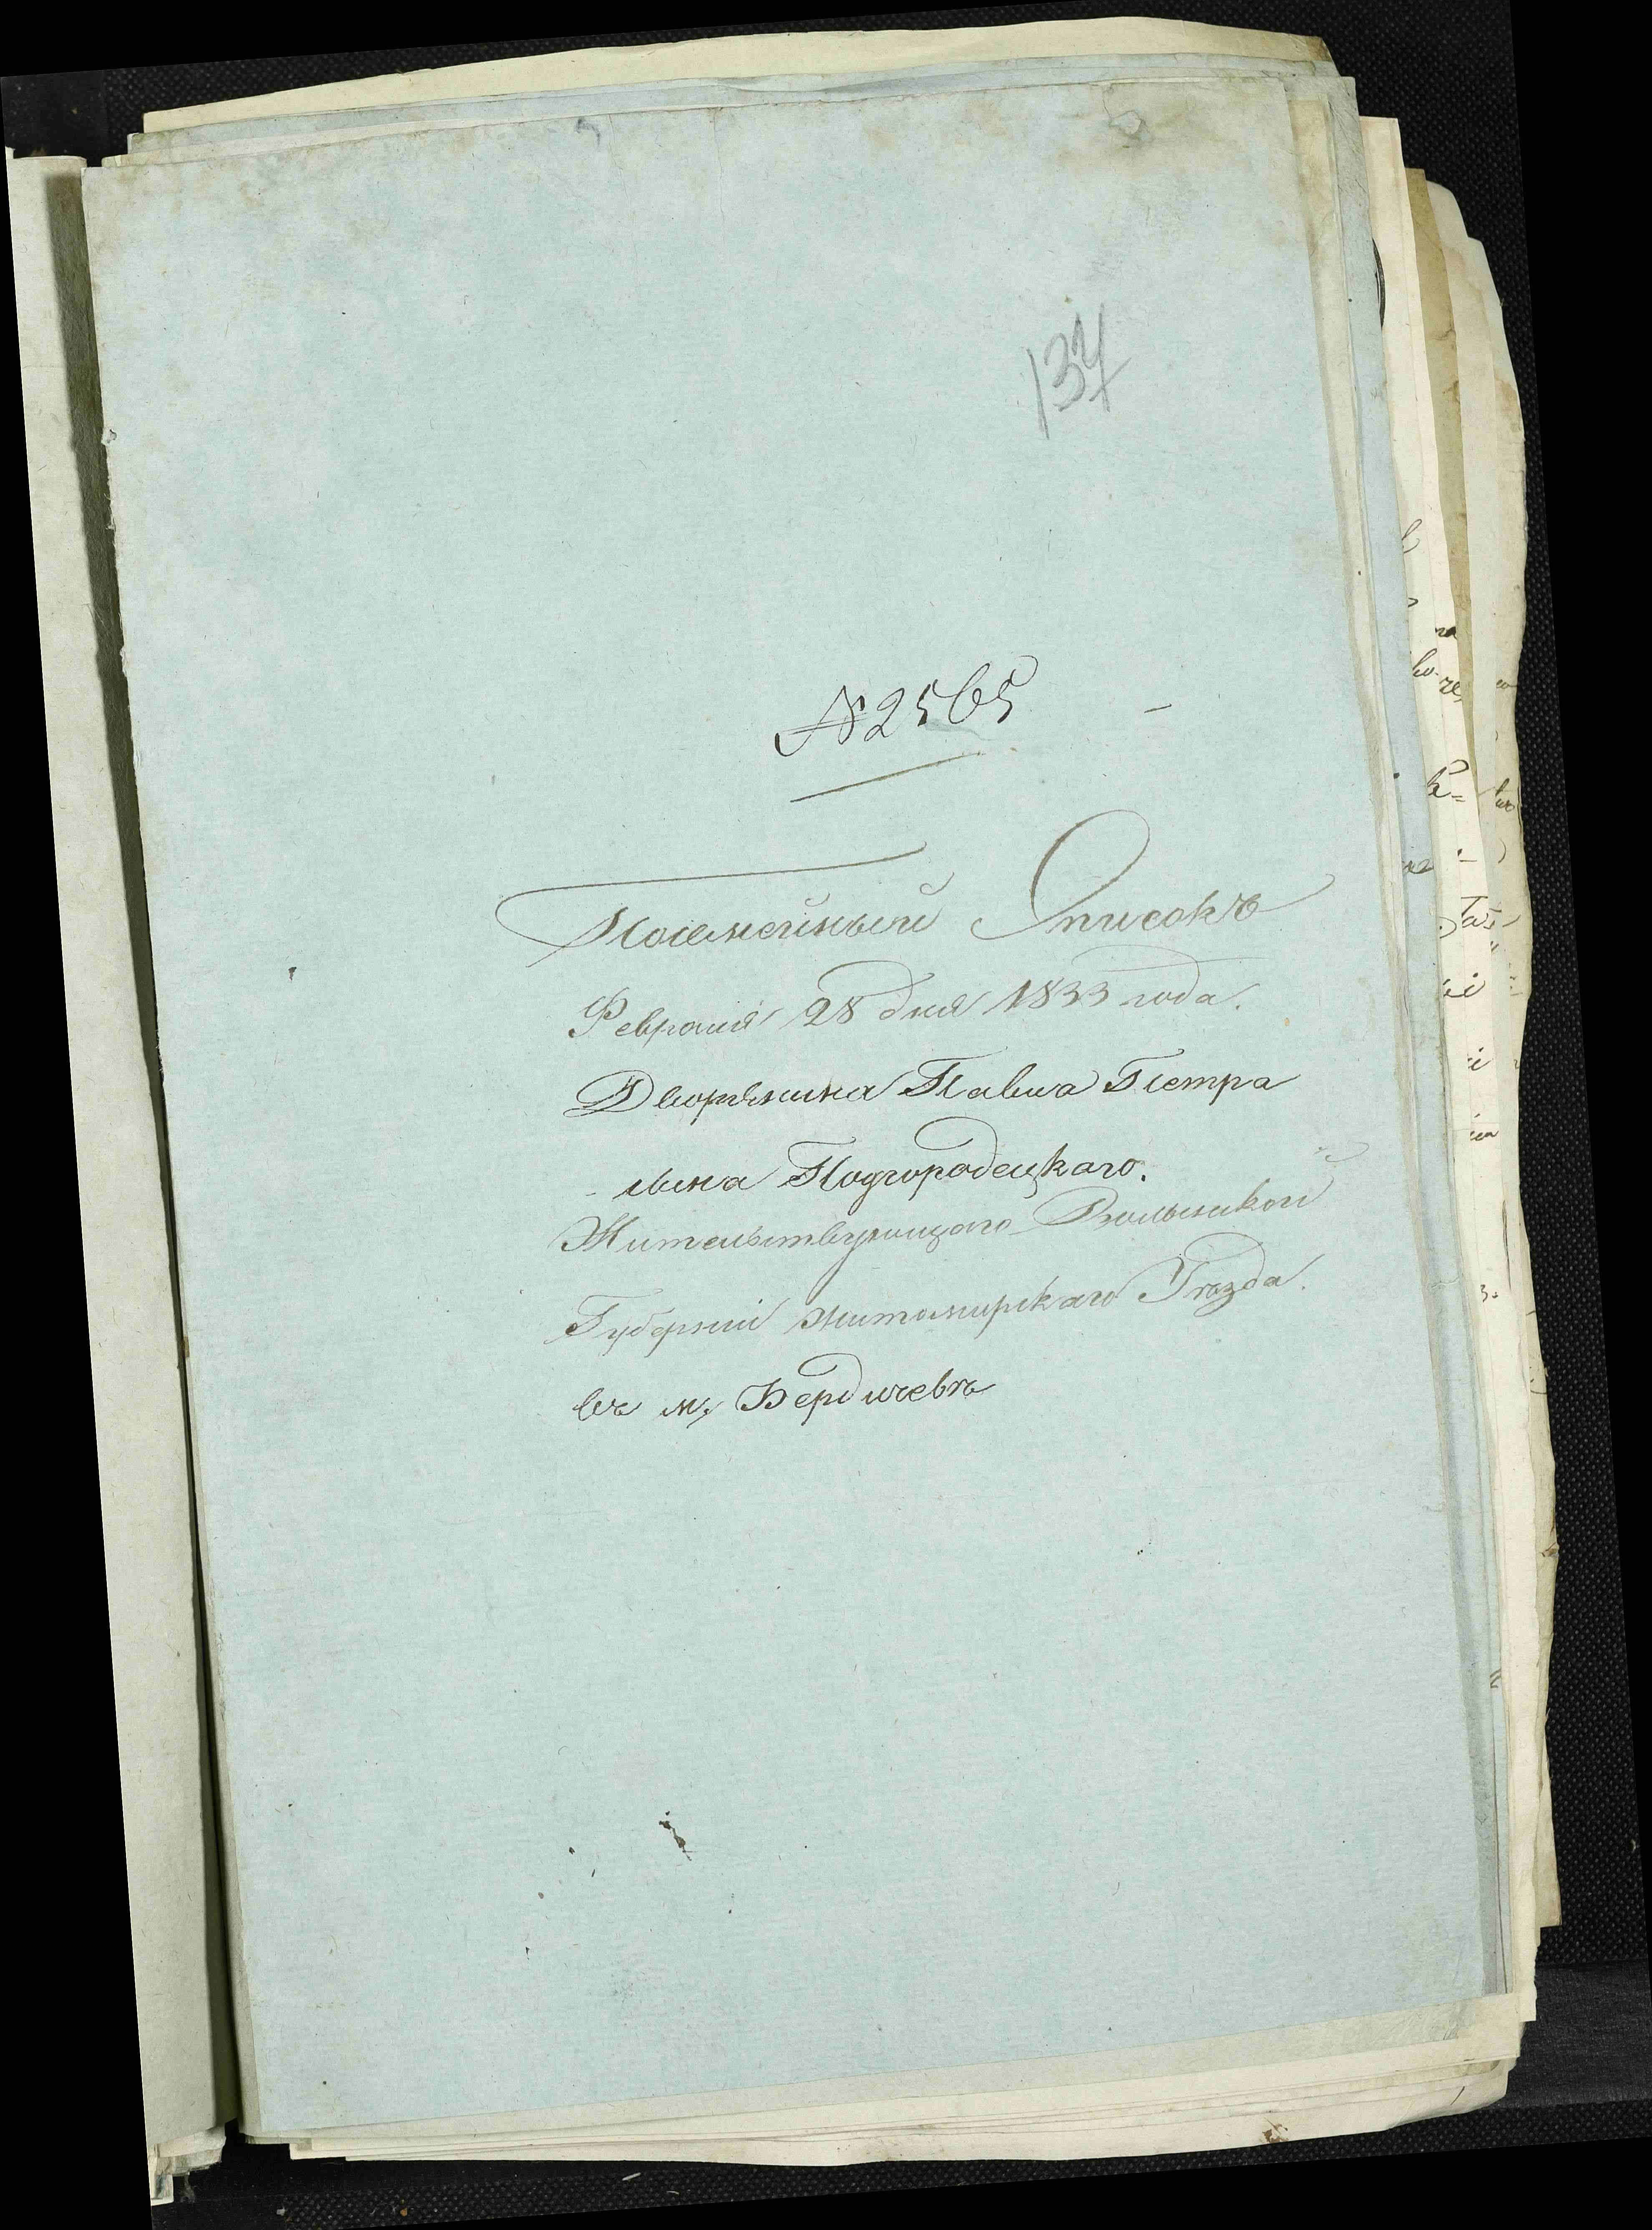 137
№ 2565
Посемейный Списокъ
Февраля 28 дня 1833 года.
Дворянина Павла Петра
сына Подгородецкаго.
Жительствующаго Волынской
Губерніи Житомирскаго Уѣзда.
въ м. Бердичевѣ